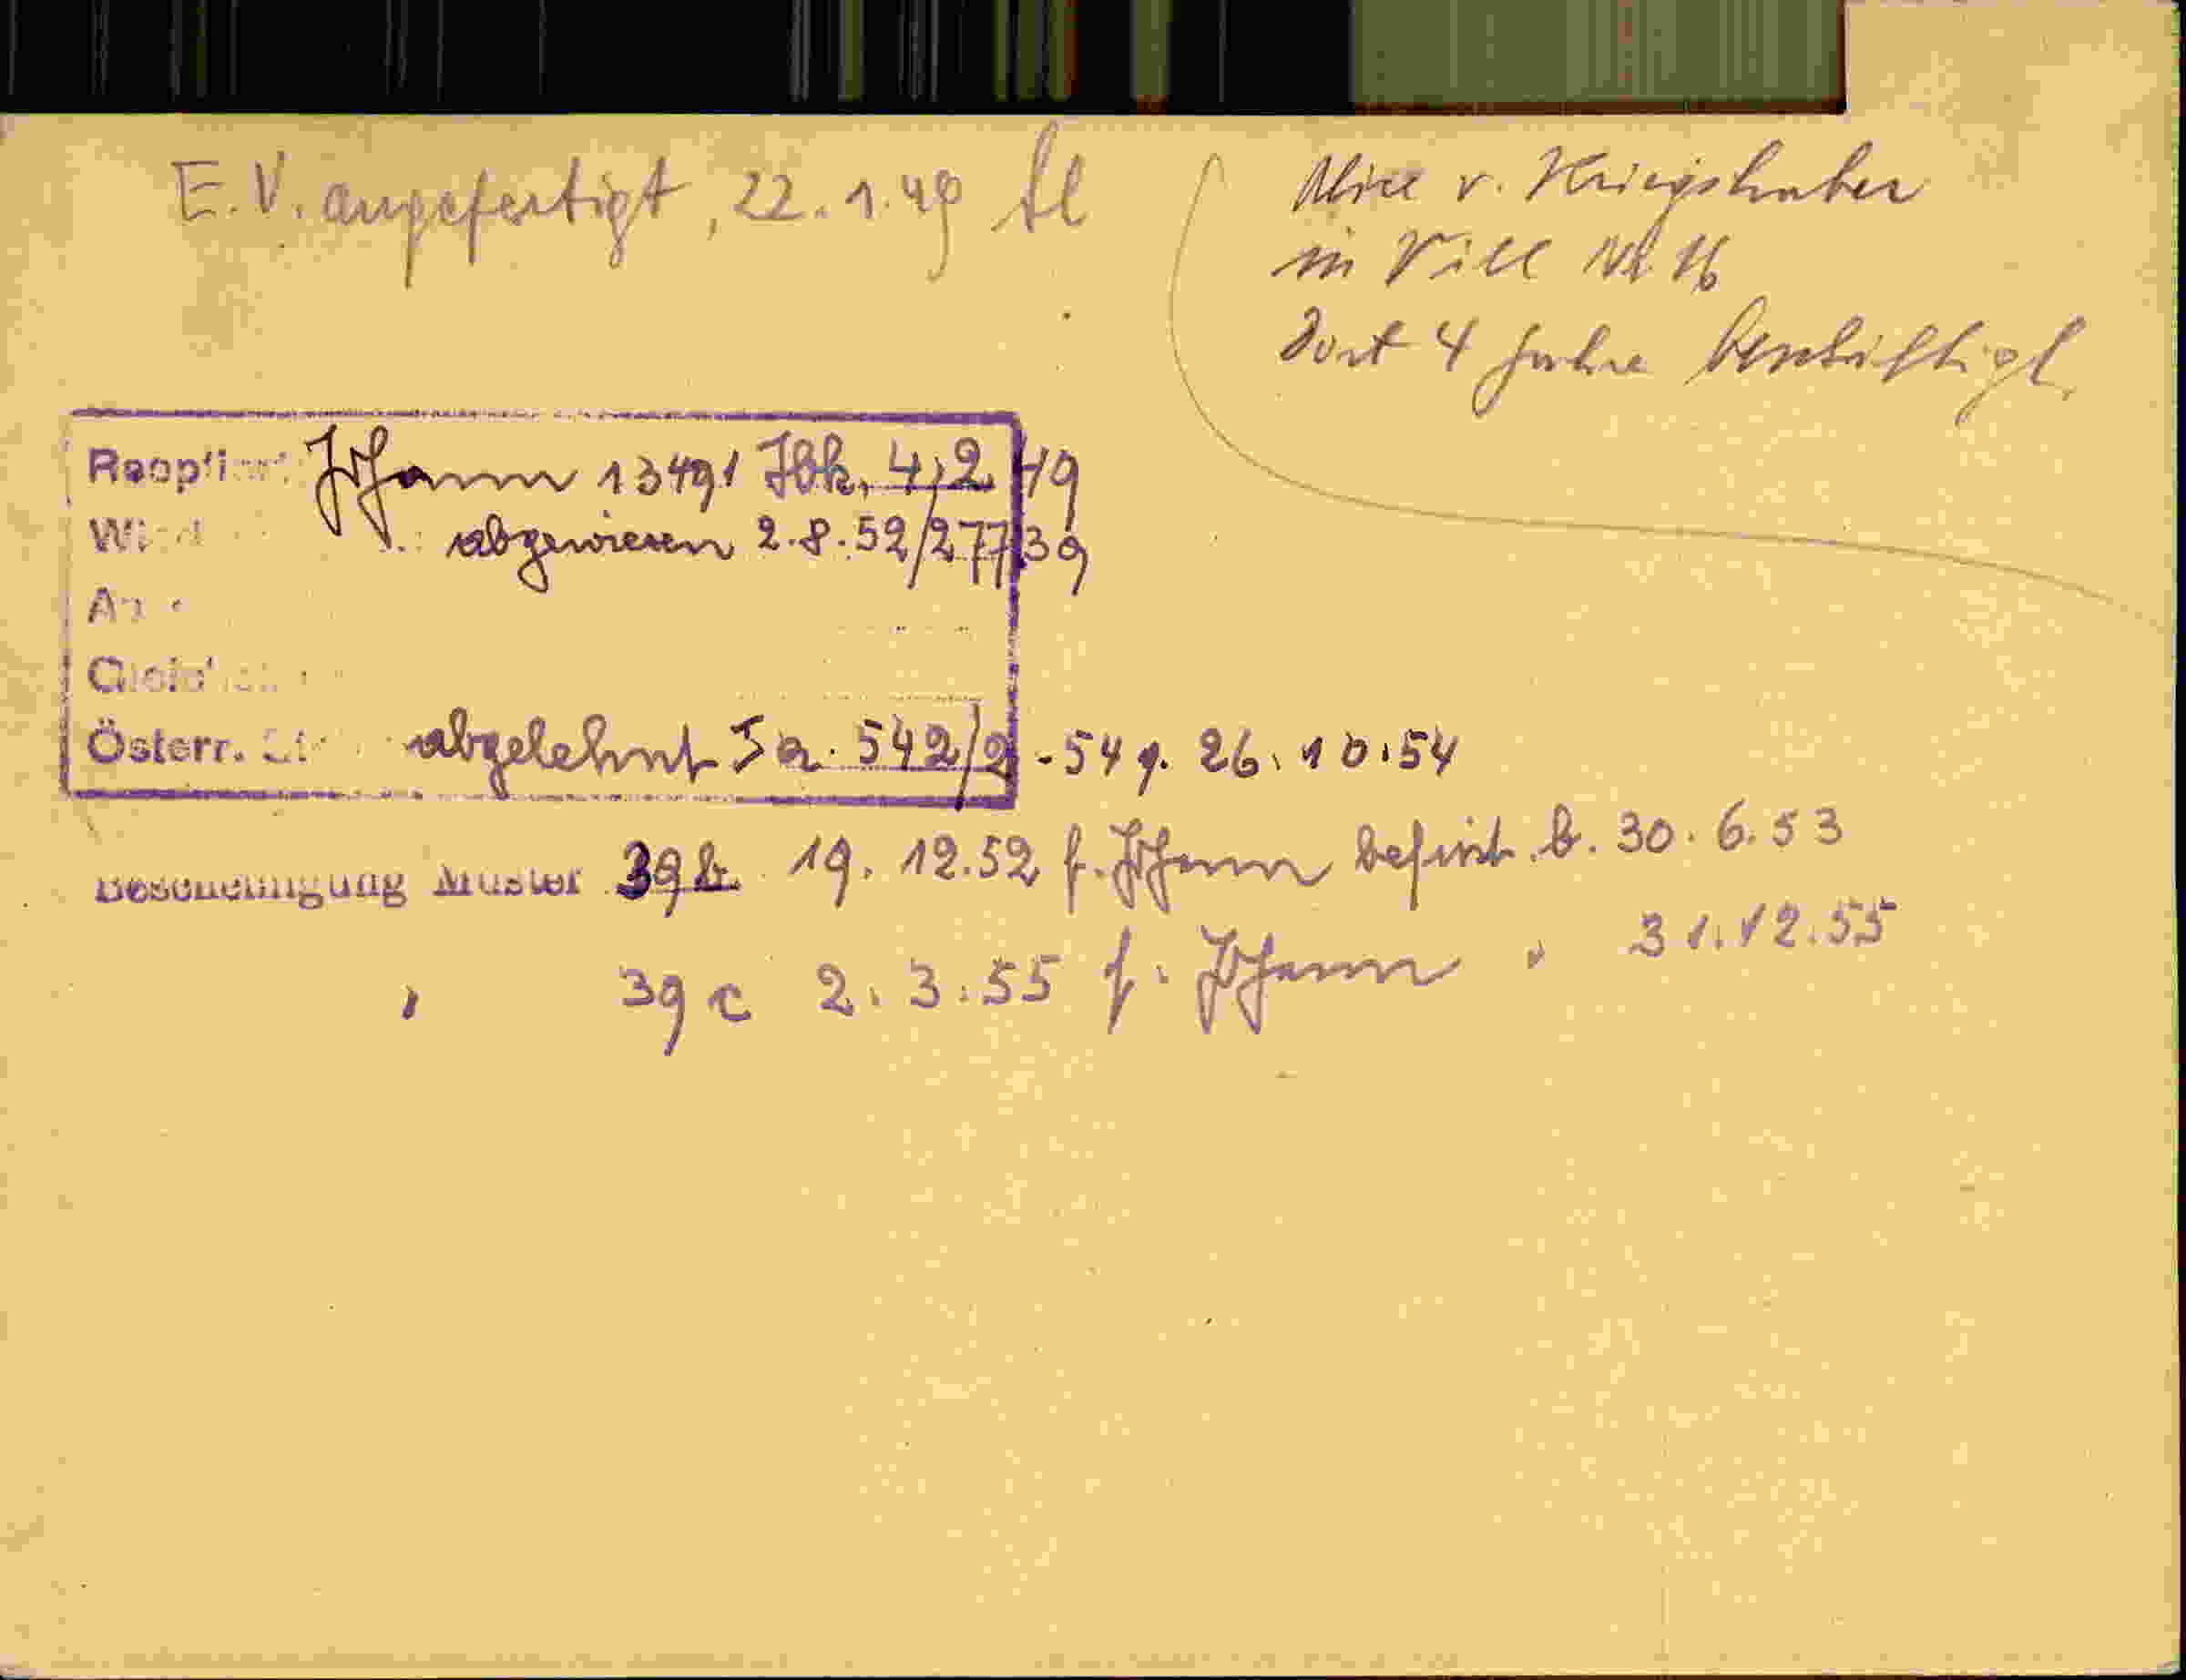 E.V. angefertigt, 22.1.49
Alice v. Kriegshaber
in Vill Nr. 16
dort 4 Jahre beschäftigt
Johann 13491 Ibk, 4,2,49
abgewiesen 2.8.52/277/39
Österr. abgelehnt Ia. 542/2-54 g. 26.10.54
Bescheinigung Muster 39b 19.12.52 f. Johann befrist. b. 30.6.53
" 39c 2.3.55 f. Johann " 31.12.55